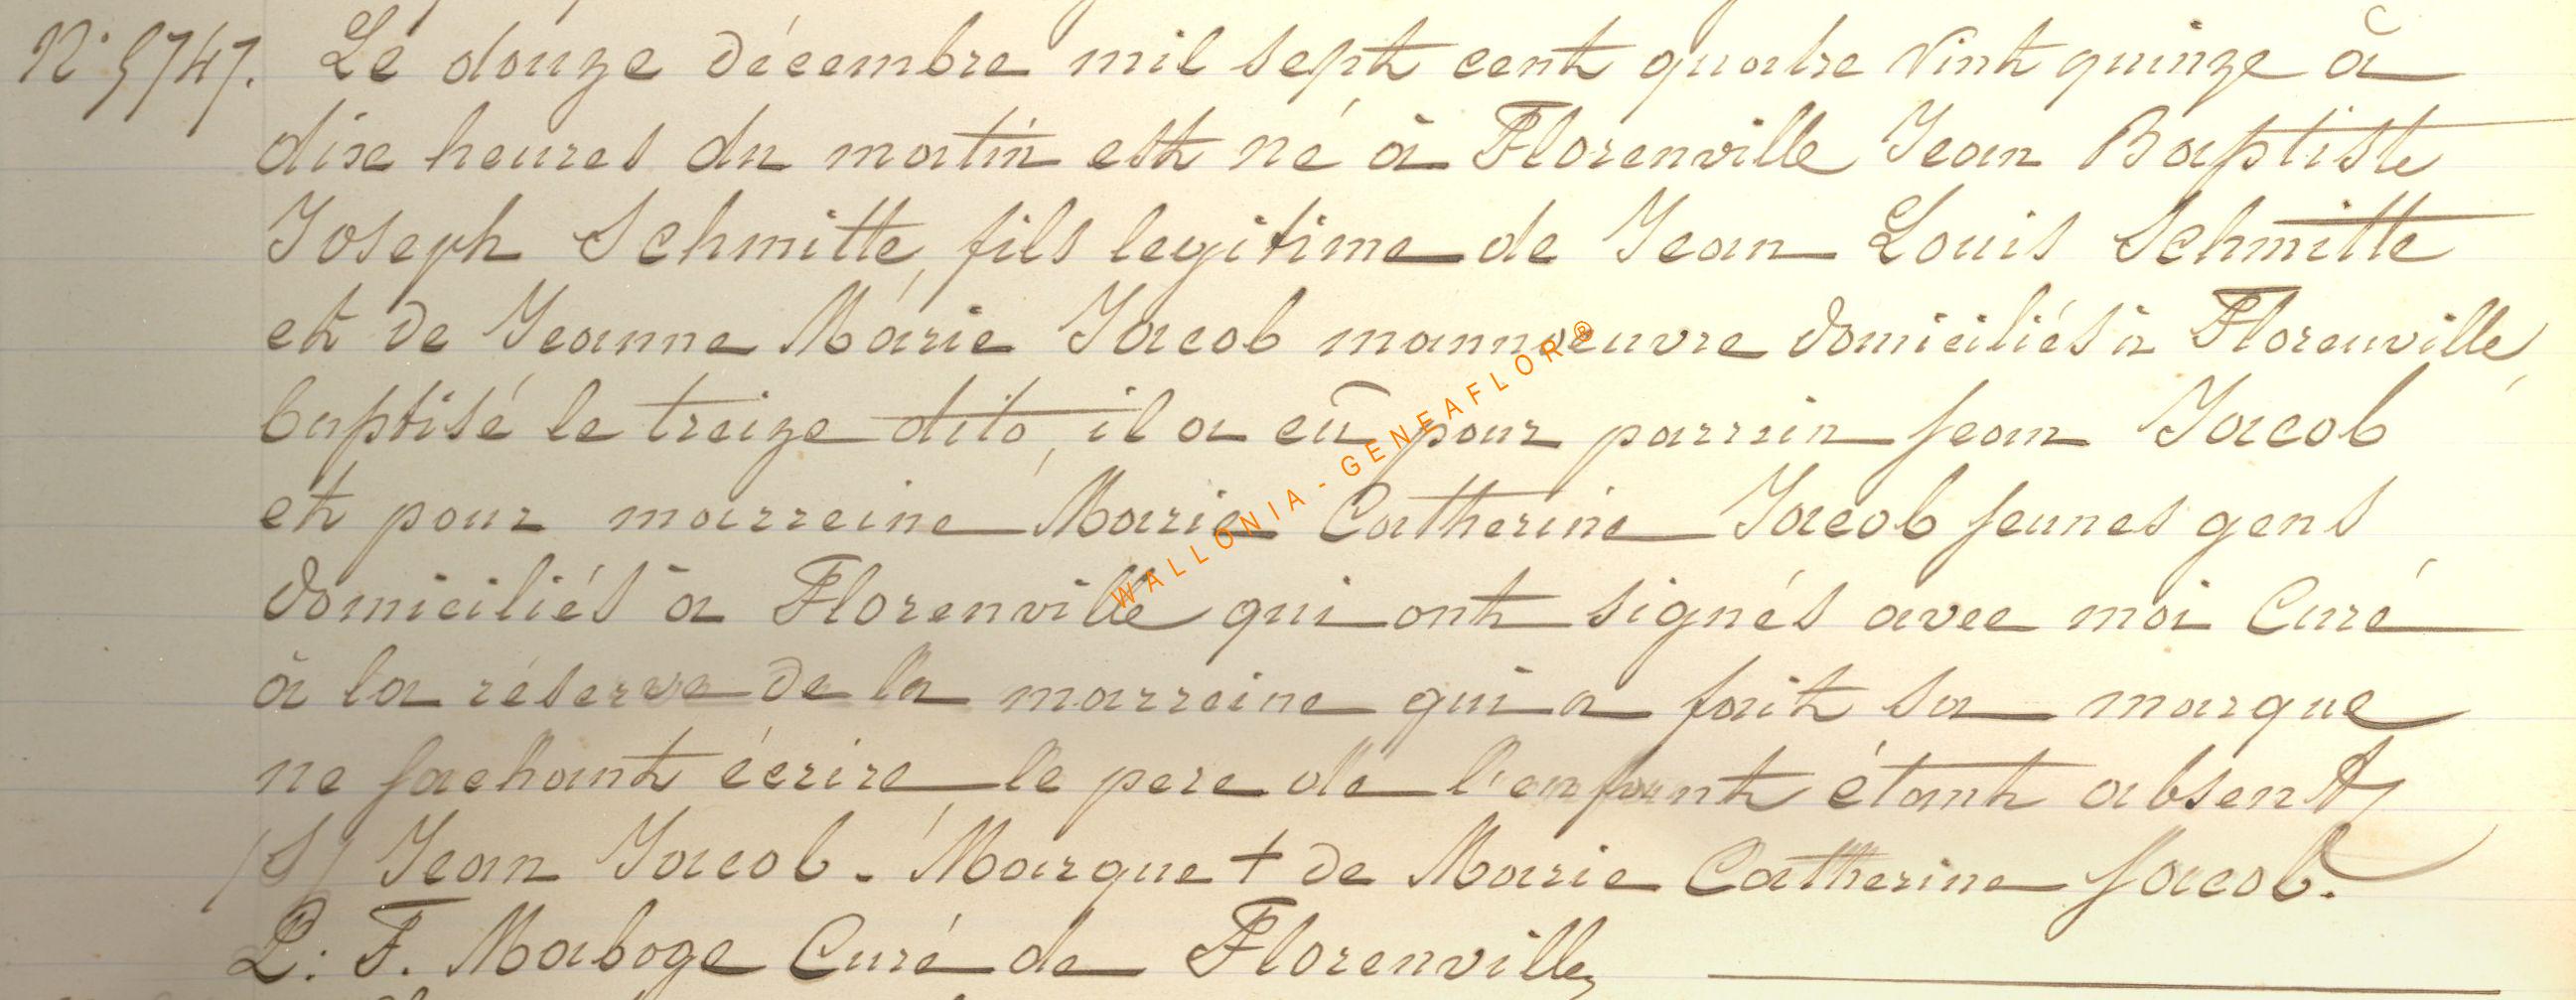 N° 5747. Le douze décembre mil sept cent quatre vint quinze à
dixe heures du matin est né à Florenville Jean Baptiste
Joseph Schmitte, fils legitime de Jean Louis Schmitte
et de Jeanne Marie Jacob mannoeuvre domiciliés à Florenville,
baptisé le treize dito, il a eû pour parrain Jean Jacob
et pour marreine Marie Catherine Jacob jeunes gens
domiciliés à Florenville qui ont signés avec moi Curé
à la réserve de la marreine qui a fait sa marque
ne sachant écrire, le pere de l'enfant étant absent
(S) Jean Jacob. Marque + de Marie Catherine Jacob.
P: F. Maboge Curé de Florenville
WALLONIA - GENEAFLOR®